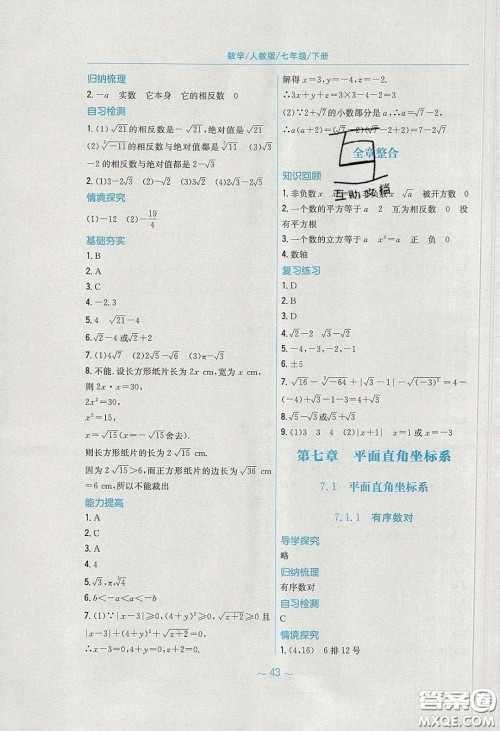 数学/人教版/七年级/下册
归纳梳理
1. -a 实数 它本身 它的相反数 0
自习检测
1. (1)√21的相反数是-√21,绝对值是√21
(2)∛-11的相反数与绝对值都是∛11
(3)√3-2的相反数与绝对值都是2-√3
2. (1)3-2√3 (2)-√3 (3)4√2 (4)2√5-√3
情境探究
(1)-12 (2)-19/4
基础夯实
1. B
2. A
3. C
4. -2,3
5. 4 √21-4
6. √2-4或√2+4
7. (1)4√7 (2)2√5-√6 (3)π-√3
8. 不能. 设长方形纸片长为2x cm,宽为x cm,
则2x·x=30,
2x²=30,
x²=15,
x=√15(x=-√15舍去).
则长方形纸片长为2√15 cm.
因为2√15>6,而正方形纸片边长为√36
=6 cm,所以不能裁出
能力提高
1. A
2. B
3. A
4. C
6. b<-a<a<-b
7. (1)∵|x-3|≥0,(4+y)²≥0,√z+2≥0,
且|x-3|+(4+y)²+√z+2=0,
∴x-3=0,4+y=0,z+2=0.
解得x=3,y=-4,z=-2.
∴3x+y+z=3×3-4-2=3
(2)∵√7的小数部分是a,∴a=√7-2,
∴a(a+2)=(√7-2)(√7-2+2)=7-2√7
全章整合
知识回顾
2. 一个数的平方等于a 2 互为相反数 0 没
有平方根
3. 一个数的立方等于a x³=a 正 负 0
4. 数轴
复习练习
1. D
2. B
3. D
4. √2-√5 √3-√2
5. -4,-3,-2,-1
6. ±5
8. √5-√3 √6+√5
9. (1)3 3 4 (2)|x+1| x=1或x=-3
第七章 平面直角坐标系
7.1 平面直角坐标系
7.1.1 有序数对
导学探究
略
归纳梳理
有序数对
自习检测
C
情境探究
1. (4,16) 6排12号
～43～
互助文档
答案圈
MXQE.COM